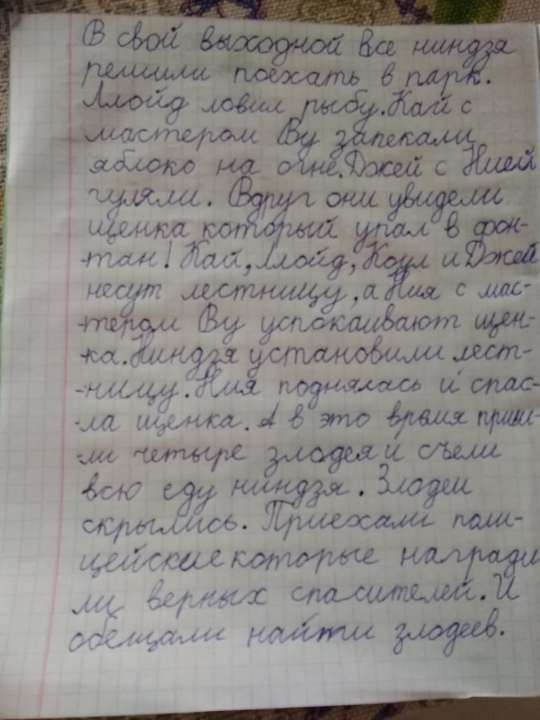 В свой выходной все ниндзя
решили поехать в парк.
Ллойд ловил рыбу. Кай с
мастером Ву запекали
яблоко на огне. Джей с Нией
гуляли. Вдруг они увидели
щенка который упал в фон-
-тан! Кай, Ллойд, Коул и Джей
несут лестницу, а Ния с мас-
-тером Ву успокаивают щен-
-ка. Ниндзя установили лест-
-ницу. Ния поднялась и спас-
-ла щенка. А в это время приш-
-ли четыре злодея и съели
всю еду ниндзя. Злодеи
скрылись. Приехали поли-
цейские которые награди
ли верных спасителей. И
обещали найти злодеев.